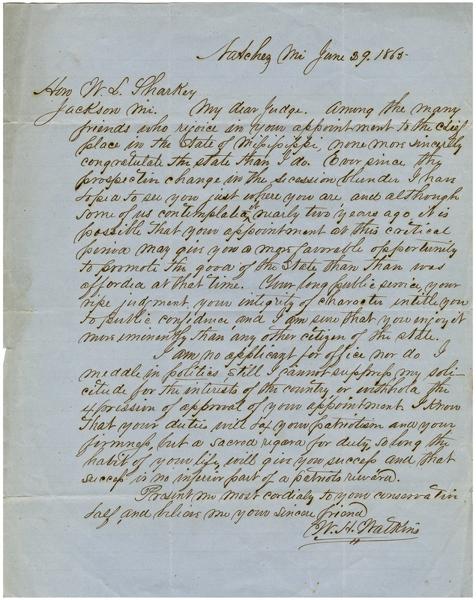 Natchez Mi June 29. 1865
Hon W. L. Sharkey
Jackson Mi. My dear Judge. Among the many
friends who rejoice in your appointment to the chief
place in the State of Mississippi, none more sincerely
congratulate the state than I do. Ever since the
prospective change in the secession blunder I have
hoped to see you just where you are, and although
some of us contemplated nearly two years ago, it is
possible that your appointment at this critical
period may give you a more favorable opportunity
to promote the good of the State than than was
afforded at that time. Your long public service, your
ripe judgment, your integrity of character entitle you
to public confidence, and I am sure that you enjoy it
more eminently than any other citizen of the state.
I am no applicant for office nor do I
meddle in politics still I cannot suppress my soli-
citude for the interests of the country, or withhold the
expression of approval of your appointment. I know
that your duties will tax your patriotism and your
firmness, but a sacred regard for duty, so long the
habit of your life, will give you success and that
success is no inferior part of a patriots reward.
Present me most cordialy to your conservative
half, and believe me your sincere friend
W. H. Watkins